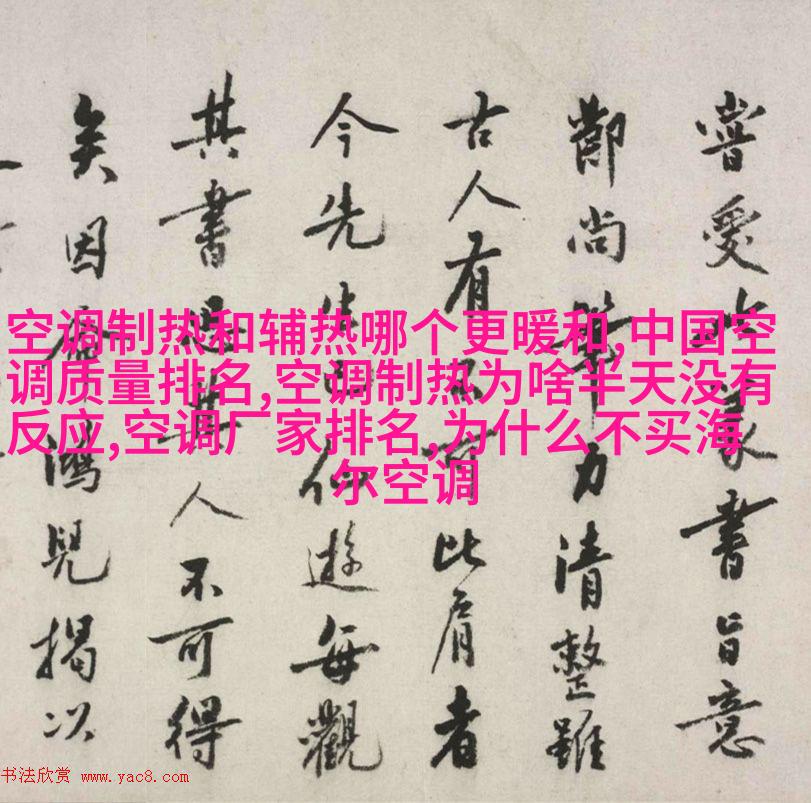 空调制热和辅热哪个更暖和,中国空
调质量排名,空调制热为啥半天没有
反应,空调厂家排名,为什么不买海
尔空调
嘗愛家書旨意
尚筆力清整雖
古人有不可比肩者
今先生仙遊每觀
其書思其人不可得
矣因鴻兒揭以
书法欣赏 www.yac8.com